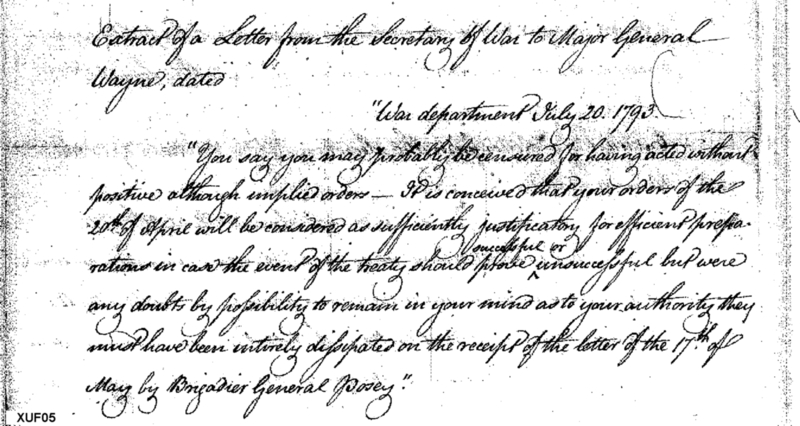 Extract of a Letter from the Secretary of War to Major General
Wayne, dated
"War department July 20. 1793.
"You say you may probably be censured for having acted without
positive although implied orders — It is conceived that your orders of the
20th of April will be considered as sufficiently justificatory for efficient prepa-
successful or
rations in case the event of the treaty should prove ^ unsuccessful but were
any doubts by possibility to remain in your mind as to your authority they
must have been entirely dissipated on the receipt of the letter of the 17th of
May by Brigadier General Posey".
XUF05